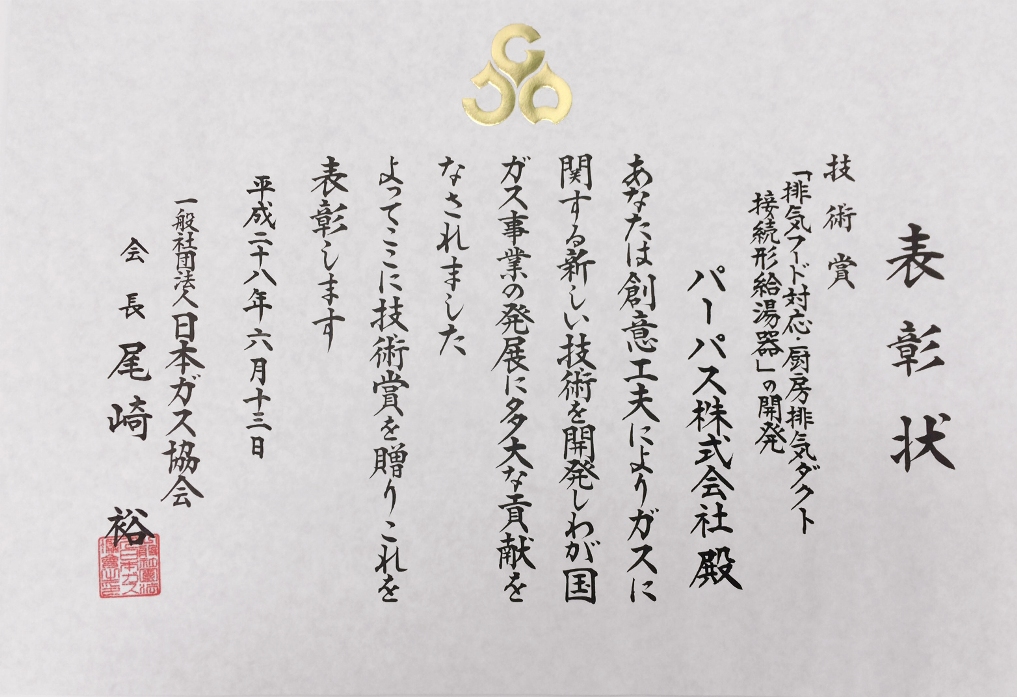 表彰状
技術賞
「排気フード対応・厨房排気ダクト
接続形給湯器」の開発
パーパス株式会社 殿
あなたは創意工夫によりガスに
関する新しい技術を開発しわが国
ガス事業の発展に多大な貢献を
なされました
よってここに技術賞を贈りこれを
表彰します
平成二十八年六月十三日
一般社団法人日本ガス協会
会長 尾崎 裕